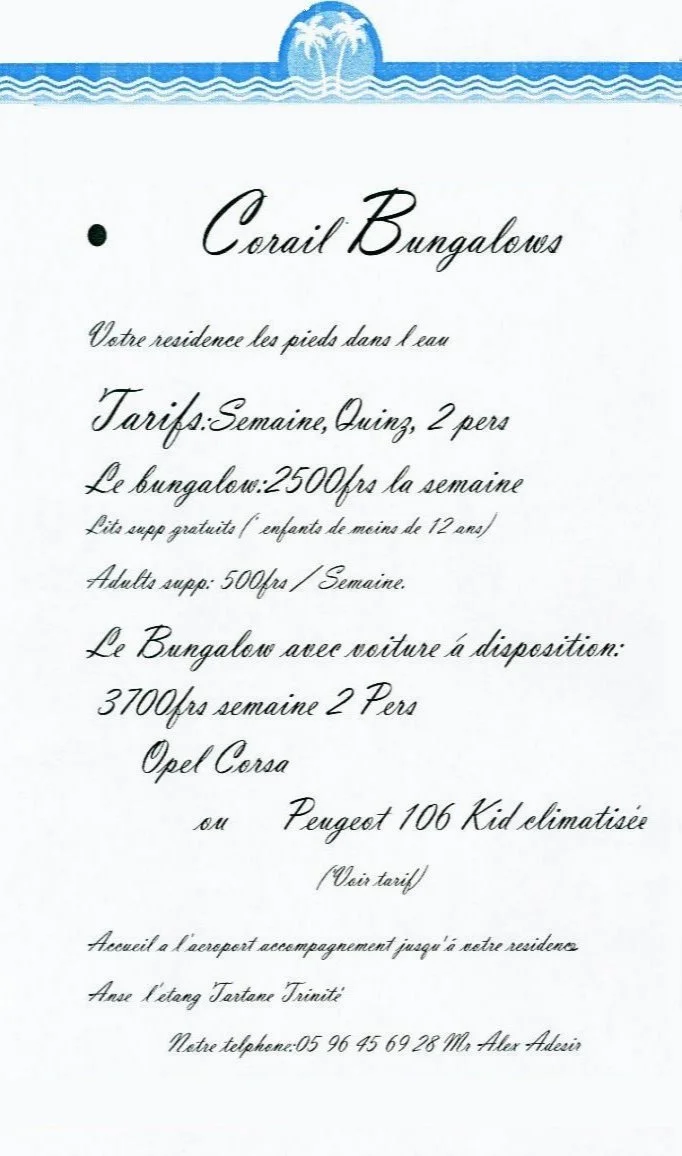 Corail Bungalows
Votre residence les pieds dans l eau
Tarifs:Semaine, Quinz, 2 pers
Le bungalow:2500frs la semaine
Lits supp gratuits (* enfants de moins de 12 ans)
Adults supp: 500frs / Semaine.
Le Bungalow avec voiture á disposition:
3700frs semaine 2 Pers
Opel Corsa
ou Peugeot 106 Kid climatisée
(Voir tarif)
Accueil a l'aeroport accompagnement jusqu'á votre residence
Anse l'etang Tartane Trinité
Notre telphone:05 96 45 69 28 Mr Alex Adesir